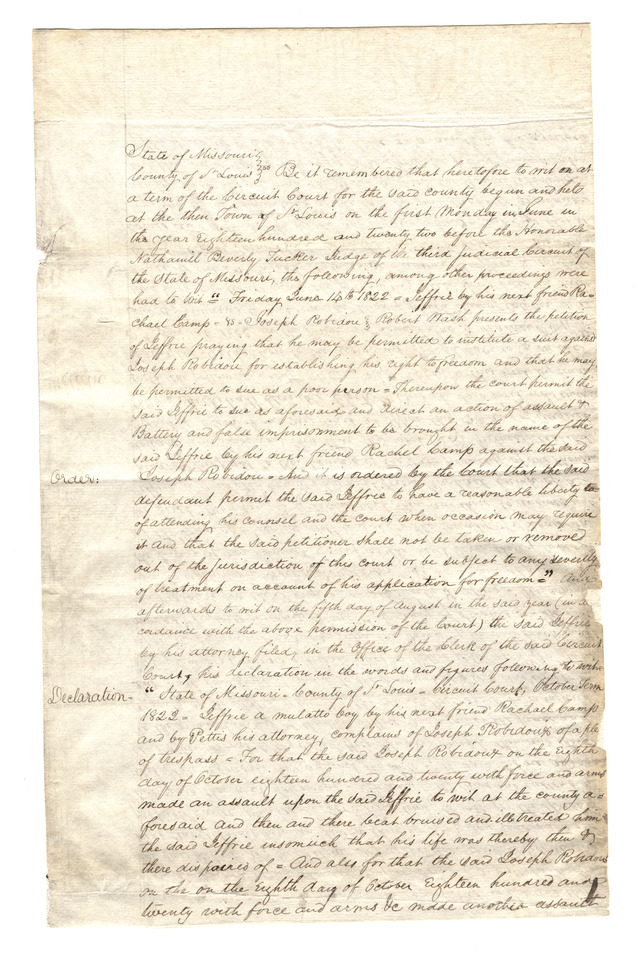 State of Missouri
County of St Louis } ss Be it remembered that heretofore to wit on at
a term of the Circuit Court for the said county begun and held
at the then Town of St Louis on the first Monday in June in
the year Eighteen hundred and twenty two before the Honorable
Nathaniel Beverly Tucker Judge of the third judicial Circuit of
the State of Missouri, the following, among other proceedings were
had to wit = "Friday June 14th 1822 = Jeffrie by his next friend Ra-
chael Camp - vs - Joseph Robidou } Robert Wash presents the petition
of Jeffrie praying that he may be permitted to institute a suit against
Joseph Robidou for establishing his right to freedom and that he may
be permitted to sue as a poor person = Thereupon the court permit the
said Jeffrie to sue as aforesaid and direct an action of assault &
Battery and false imprisonment to be brought in the name of the
said Jeffrie by his next friend Rachel Camp against the said
Order: Joseph Robidou = And it is ordered by the Court that the said
defendant permit the said Jeffrie to have a reasonable liberty
of attending his counsel and the court when occasion may require
it And that the said petitioner shall not be taken or remove
out of the jurisdiction of this court or be subject to any severity
of treatment on account of his application for freedom =" And
afterwards to wit on the fifth day of August in the said year (in a
cordance with the above permission of the Court) the said Jeffrie
by his attorney filed, in the Office of the Clerk of the said Circuit
Court, his declaration in the words and figures following to wit =
Declaration - "State of Missouri - County of St Louis = Circuit Court, October Term
1822 = Jeffrie a mulatto boy by his next friend Rachael Camp
and by Pettis his attorney, complains of Joseph Robidoux of a ple
of trespass = For that the said Joseph Robidoux on the eighth
day of October eighteen hundred and twenty with force and arms
made an assault upon the said Jeffrie to wit at the county a=
foresaid and then and there beat bruised and illtreated him
the said Jeffrie insomuch that his life was thereby then &
there dispaired of = And also for that the said Joseph Robidoux
on the on the eighth day of October Eighteen hundred and
twenty with force and arms &c made another assault